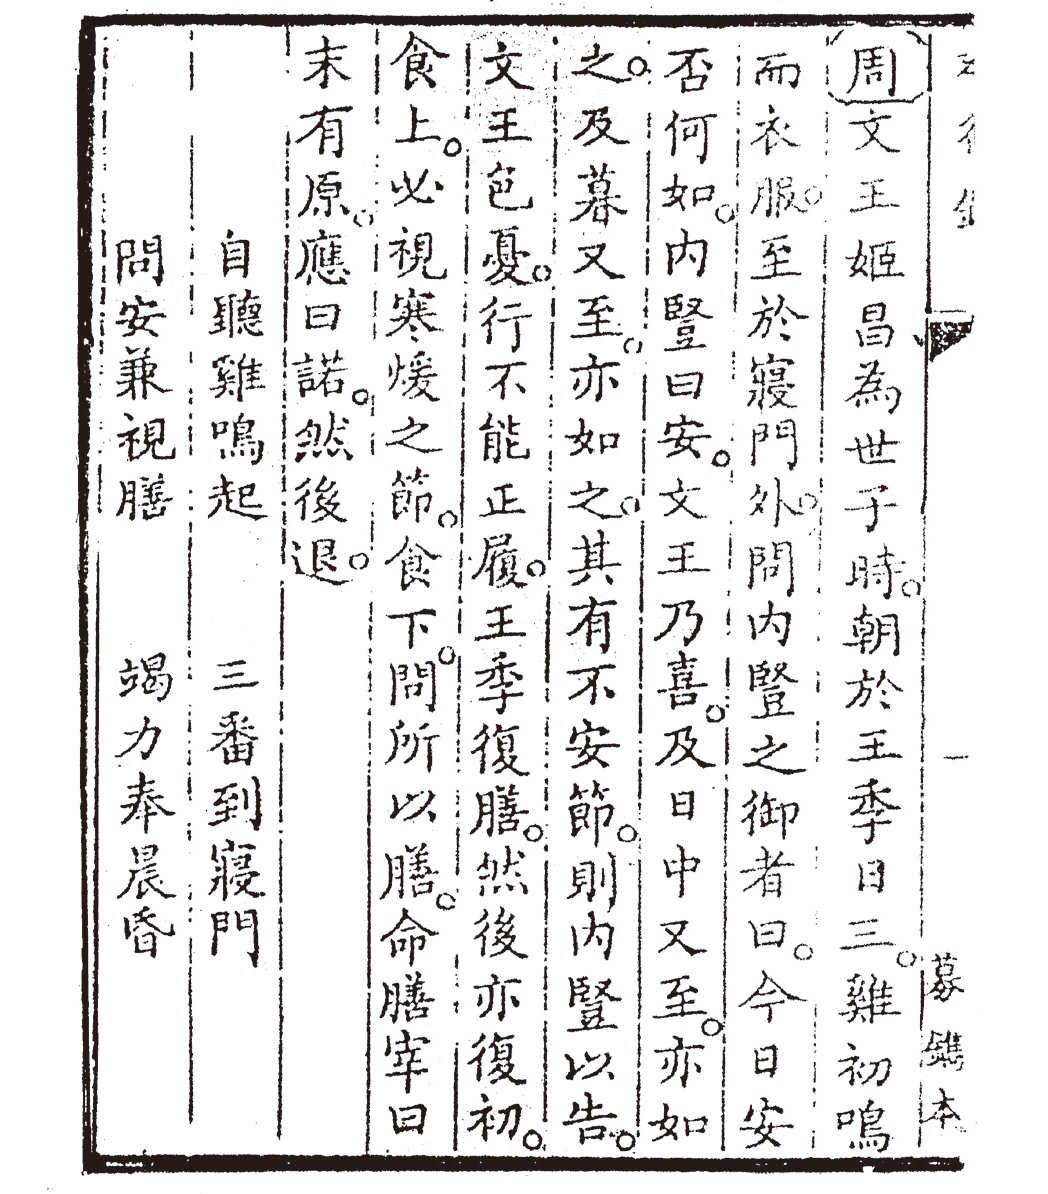 一
募鐫本
周文王姬昌為世子時朝於王季日三雞初鳴
而衣服至於寢門外問内豎之御者曰今日安
否何如内豎曰安文王乃喜及日中又至亦如
之及暮又至亦如之其有不安節則内豎以告
文王色憂行不能正履王季復膳然後亦復初
食上必視寒煖之節食下問所以膳命膳宰曰
末有原應曰諾然後退
自聽雞鳴起 三番到寢門
問安兼視膳 竭力奉晨昏